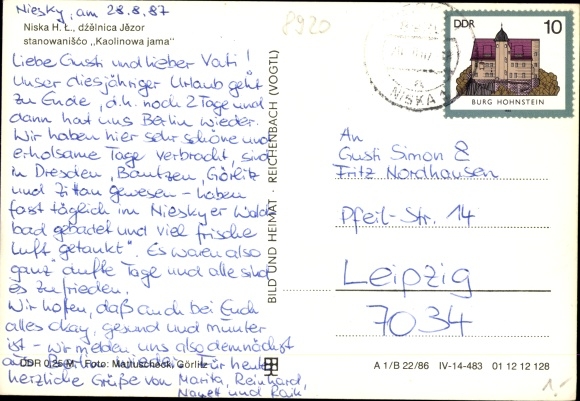 Niesky, am 28.8.87
8920
Niska H. Ł., dźělnica Jězor
stanowanišćo „Kaolinowa jama"
Liebe Gusti und lieber Vati!
Unser diesjähriger Urlaub geht
zu Ende, d.h. noch 2 Tage und
dann hat uns Berlin wieder.
Wir haben hier sehr schöne und
erholsame Tage verbracht, sind
in Dresden, Bautzen, Görlitz
und Zittau gewesen - haben
fast täglich im Nieskyer Wald-
bad gebadet und viel frische
Luft „getankt". Es waren also
ganz dufte Tage und alle sind
es zufrieden.
Wir hoffen, daß auch bei Euch
alles okay, gesund und munter
ist - wir melden uns also demnächst
aus Berlin wieder. Für heute
herzliche Grüße von Marita, Reinhard,
und Raik
DDR 0,25 M Foto: Martuscheck, Görlitz
BILD UND HEIMAT · REICHENBACH (VOGTL)
NISKA
DDR 10
BURG HOHNSTEIN
An
Gusti Simon &
Fritz Nordhausen
Pfeil-Str. 14
Leipzig
7034
A 1/B 22/86 IV-14-483 01 12 12 128
1.-